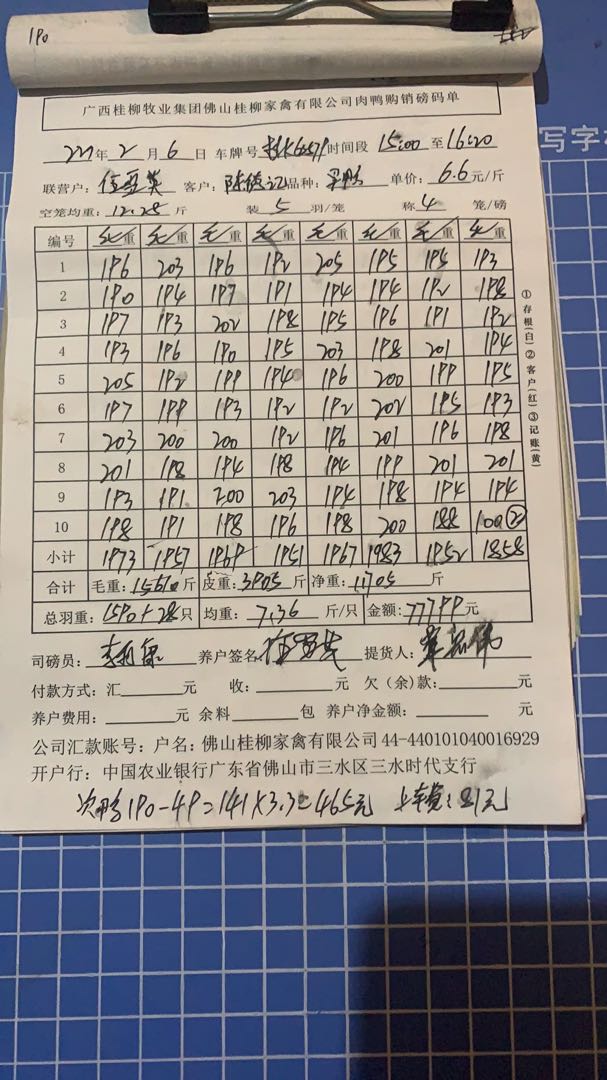 190
广西桂柳牧业集团佛山桂柳家禽有限公司肉鸭购销磅码单
22年 2 月 6 日 车牌号 时间段 15:00 至 16:20
联营户: 客户: 陈德记 品种: 单价: 6.6 元/斤
空笼均重: 12.28 斤 装 5 羽/笼 称 4 笼/磅
编号 毛重 毛重 毛重 毛重 毛重 毛重 毛重 毛重
1 196 203 196 192 205 195 195 193
2 190 194 197 191 194 194 192 198
3 197 193 202 198 195 196 191 192
4 193 196 190 195 203 198 201 194
5 205 192 199 194 196 200 199 195
6 197 199 193 192 192 202 195 193
7 203 200 200 192 196 201 196 198
8 201 198 194 198 194 199 201 201
9 193 191 200 203 194 198 194 194
10 198 191 198 196 198 200 188 100②
小计 1973 1957 1969 1951 1967 1983 1952 1858
合计 毛重: 15610 斤 皮重: 3905 斤 净重: 11705 斤
总羽重: 1590+28只 均重: 7.36 斤/只 金额: 77799 元
①存根(白)②客户(红)③记账(黄)
司磅员: 养户签名: 提货人:
付款方式: 汇 元 收: 元 欠(余)款: 元
养户费用: 元 余料 包 养户净金额: 元
公司汇款账号: 户名: 佛山桂柳家禽有限公司 44-440101040016929
开户行: 中国农业银行广东省佛山市三水区三水时代支行
次鸭 190-49=141×3.3=465元 上车费: 81元
写字